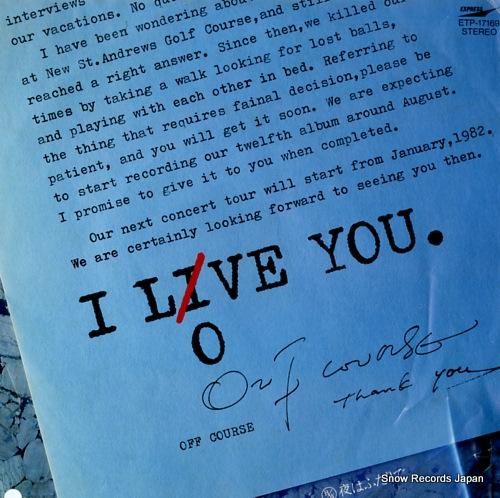 interviews
our vacations. No qu
I have been wondering abou
at New St.Andrews Golf Course,and still
reached a right answer. Since then,we killed our
times by taking a walk looking for lost balls,
and playing with each other in bed. Referring to
the thing that requires fainal decision,please be
patient, and you will get it soon. We are expecting
to start recording our twelfth album around August.
I promise to give it to you when completed.
Our next concert tour will start from January,1982.
We are certainly looking forward to seeing you then.
I LIVE YOU.
O
Off Course
Thank you
OFF COURSE
EXPRESS
ETP-17169
STEREO
夜はふたりで
Snow Records Japan